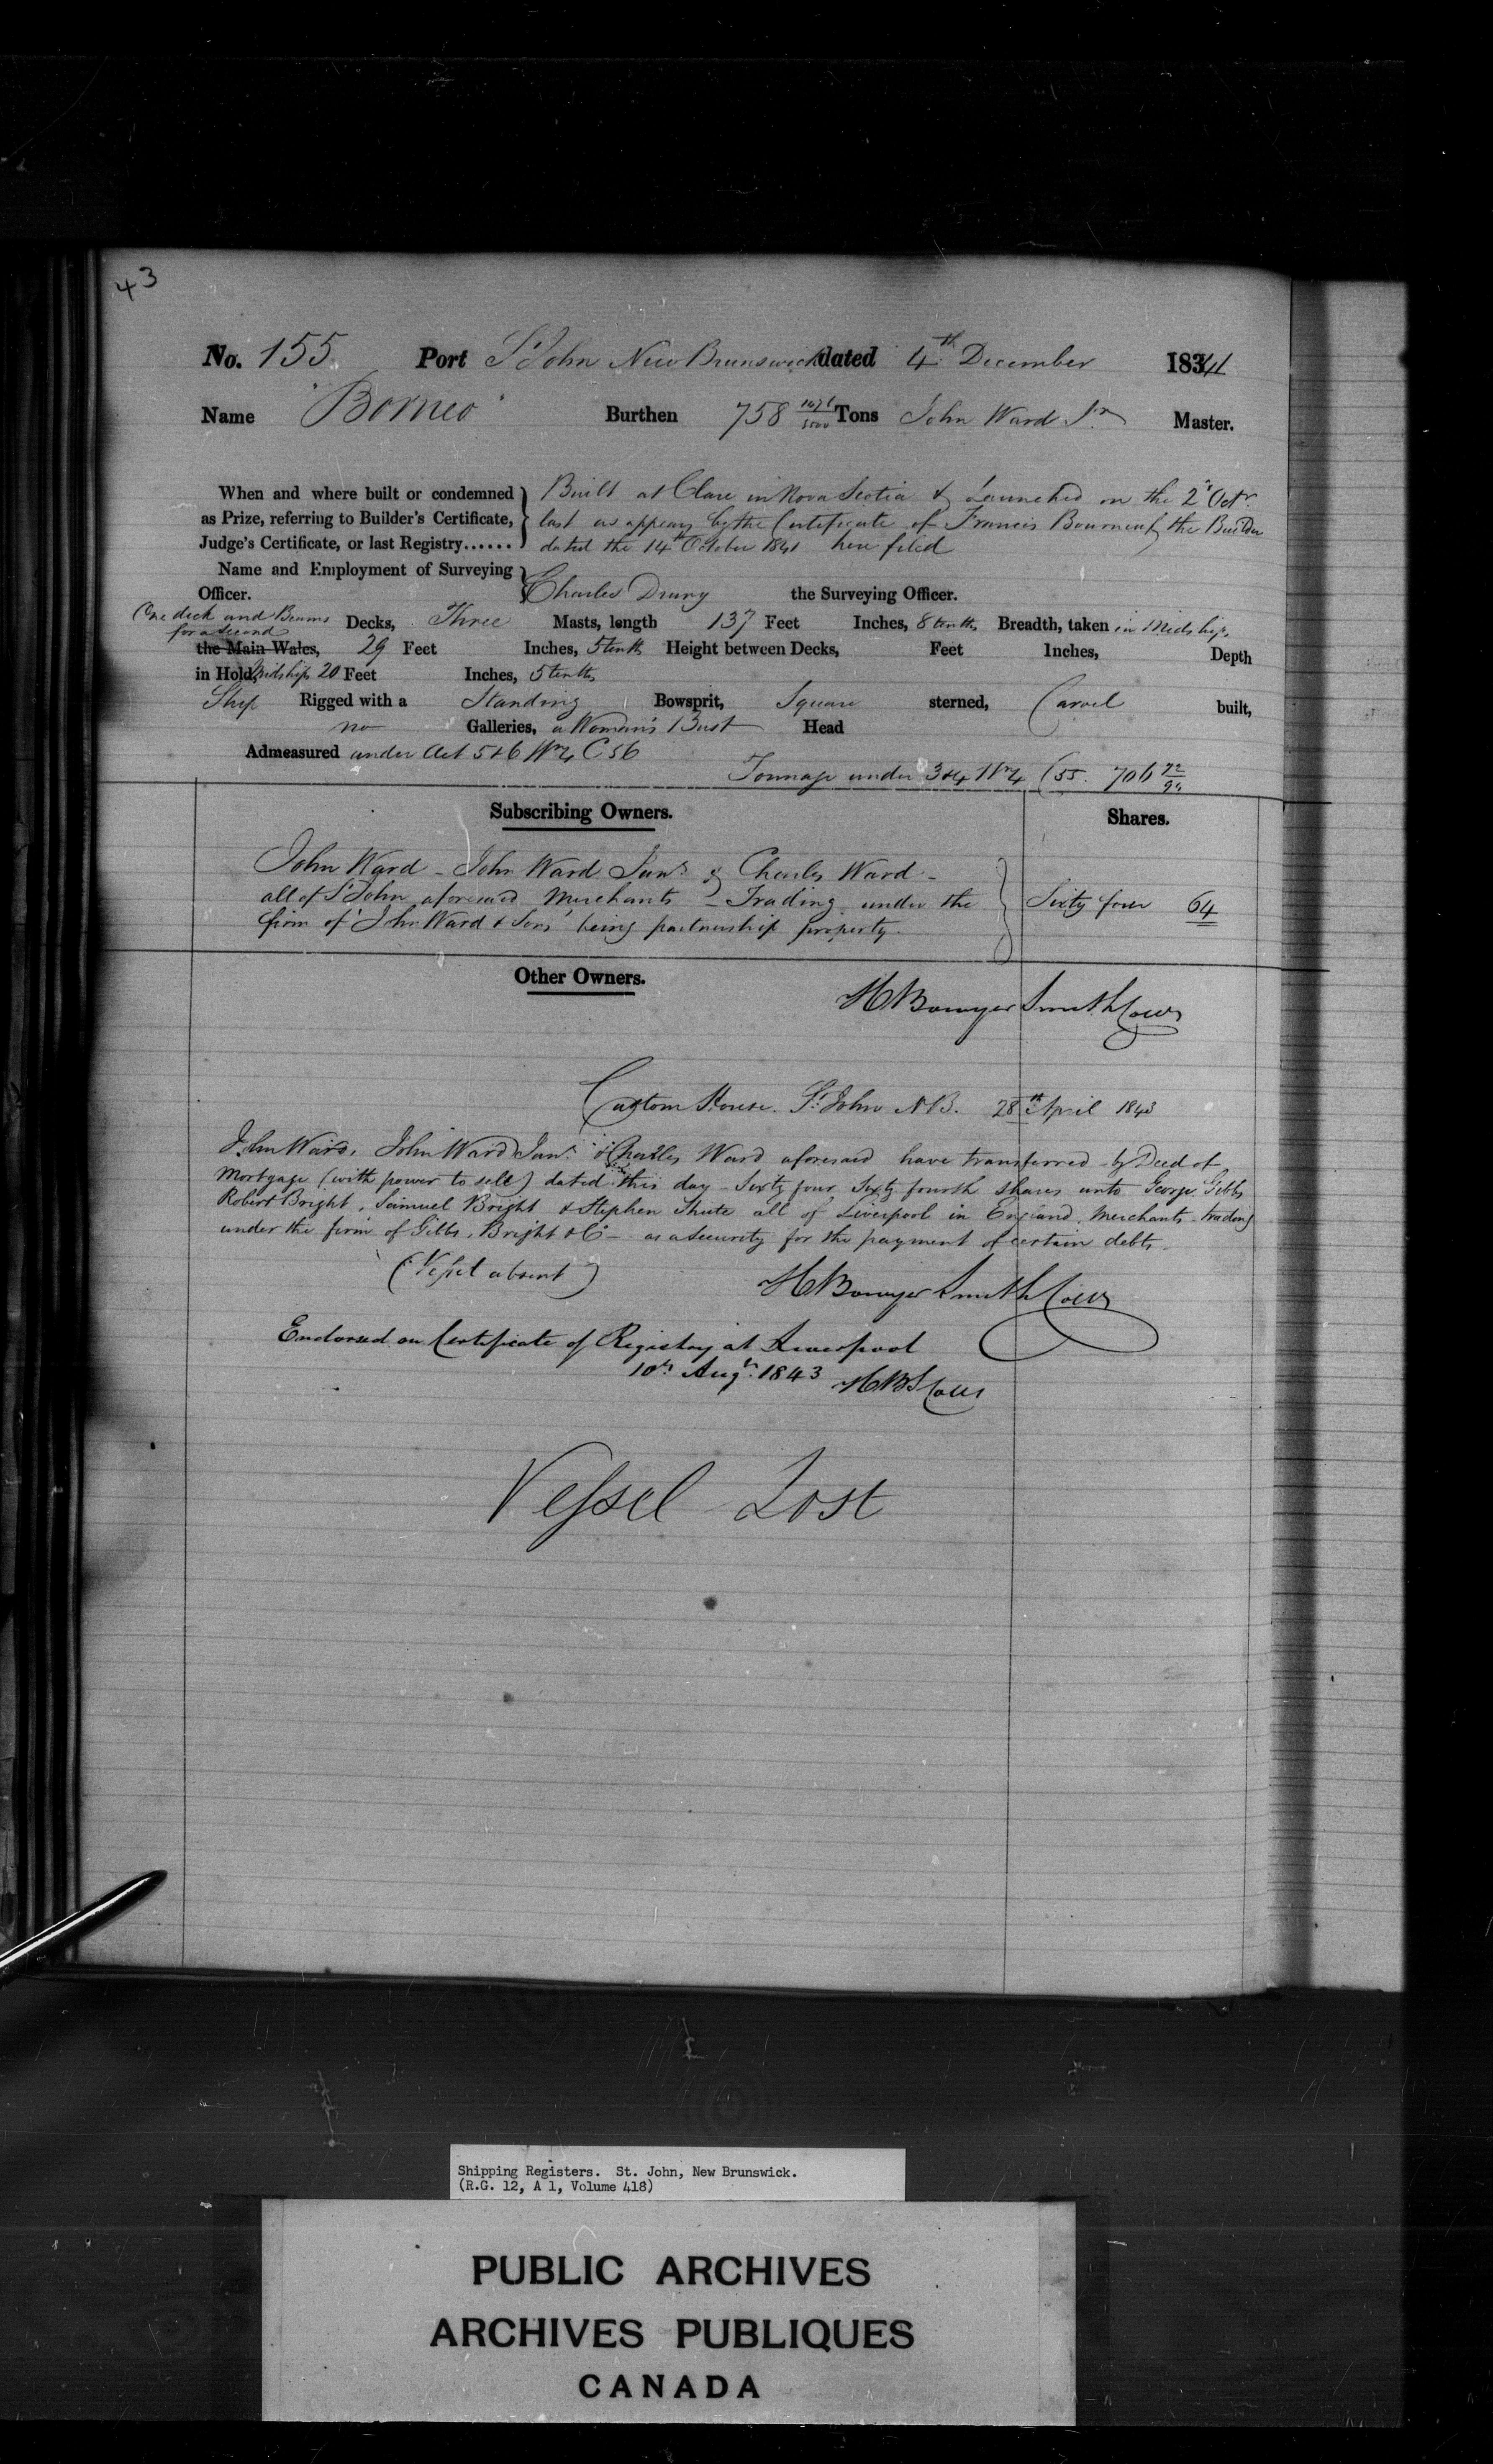 43
No. 155 Port St John New Brunswick dated 4th December 1841
Name "Borneo" Burthen 758 Tons John Ward Jr Master.
When and where built or condemned } Built at Clare in Nova Scotia & Launched on the 2d Octr
as Prize, referring to Builder's Certificate, } last as appears by the Certificate of Francis Bourneuf the Builder
Judge's Certificate, or last Registry...... } dated the 14th October 1841 here filed
Name and Employment of Surveying }
Officer. } Charles Drury the Surveying Officer.
One deck and Beams for a second Decks, Three Masts, length 137 Feet Inches, 8 tenths Breadth, taken in Midships
the Main Wales, 29 Feet Inches, 5 tenths Height between Decks, Feet Inches, Depth
in Hold, Midships 20 Feet Inches, 5 tenths
Ship Rigged with a Standing Bowsprit, Square sterned, Carvel built,
no Galleries, a Woman's Bust Head
Admeasured under Act 5 & 6 Wm 4 C 56
Tonnage under 3 & 4 Wm 4 C 55. 706
Subscribing Owners. Shares.
John Ward - John Ward Junr & Charles Ward -
all of St John aforesaid Merchants - Trading under the } Sixty four 64
firm of 'John Ward & Sons' being partnership property.
Other Owners.
H Bowyer Smith Collr
Custom House. St John N.B. 28th April 1843
John Ward, John Ward Junr & Charles Ward aforesaid have transferred by Deed of
Mortgage (with power to sell) dated this day - Sixty four Sixty fourth shares unto George Gibbs
Robert Bright, Samuel Bright & Stephen Shute all of Liverpool in England, Merchants trading
under the firm of Gibbs, Bright & Co - as a Security for the payment of certain debts.
(Vessel absent) H Bowyer Smith Collr
Endorsed on Certificate of Registry at Liverpool
10th Augt. 1843 HBS Collr
Vessel Lost
Shipping Registers. St. John, New Brunswick.
(R.G. 12, A 1, Volume 418)
PUBLIC ARCHIVES
ARCHIVES PUBLIQUES
CANADA